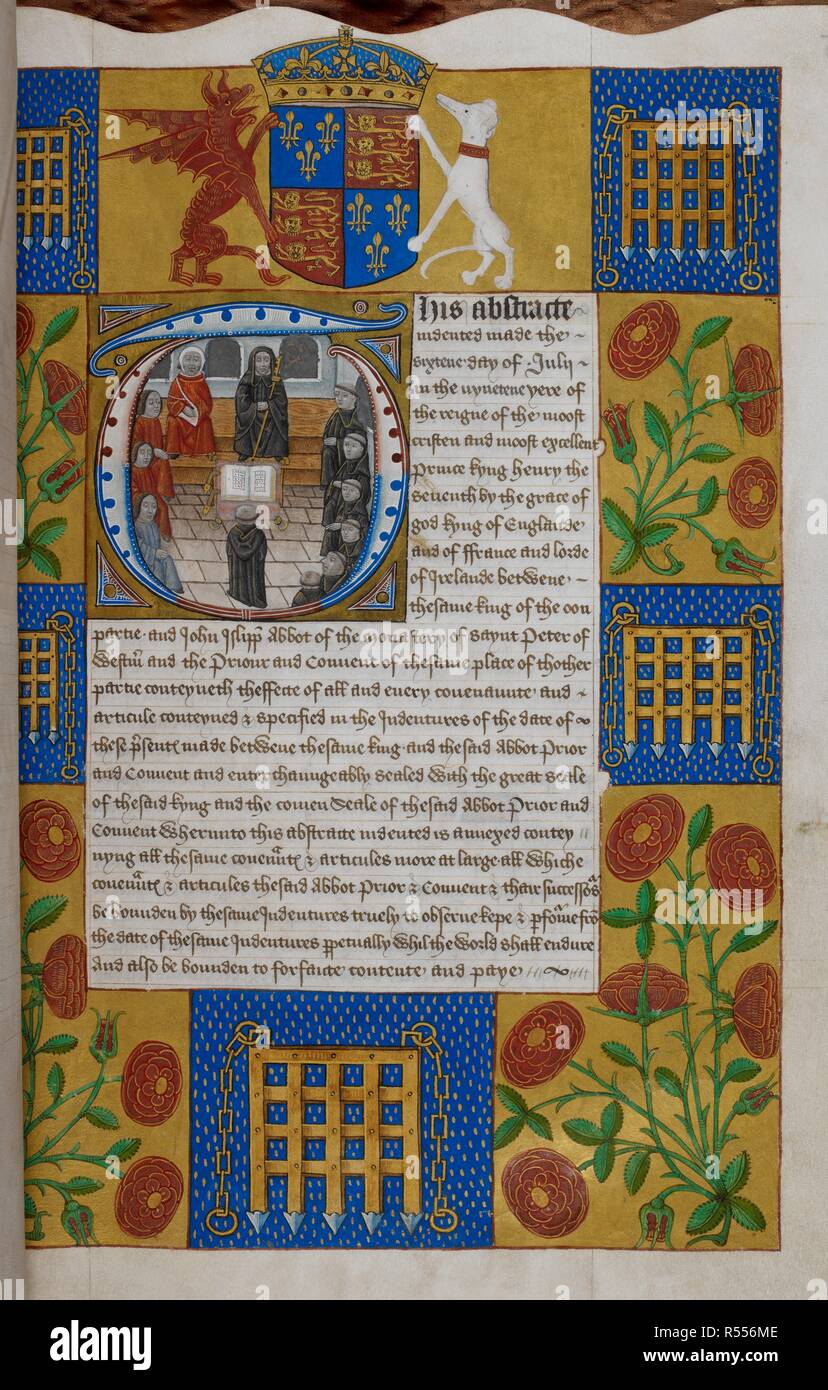 This abstracte
indented made the
sixtene day of Julij
in the nyneteneyere of
the reigne of the moost
cristen and moost excellent
Prince kyng henry the
seuenth by the grace of
god kyng of Englande
and of ffrance and lorde
of Irelande betwene
thesame king of the oon
partie and John Islipp Abbot of the monastery of Saynt Peter of
Westm and the Priour and Conuent of thesame place of thother
partie conteyneth theffecte of all and euery couenaunte and
articule conteyned & specified in the Indentures of the date of
these psentz made betwene thesame king and thesaid Abbot Prior
and Conuent and enterchaungeably sealed with the great Seale
of thesaid kyng and the comen Seale of thesaid Abbot Prior and
Conuent Wherunto this abstracte indented is annexed contey
nyng all thesame couenatz & articules more at large all Whiche
couenatz & articules thesaid Abbot Prior & Conuent & thair successos
be bounden by thesame Indentures truely to obserue kepe & pfome fro
the date of thesame Indentures ppetually whil the World shall endure
And also be bounden to forfaite contente and paye
alamy
Image ID: R556ME
www.alamy.com